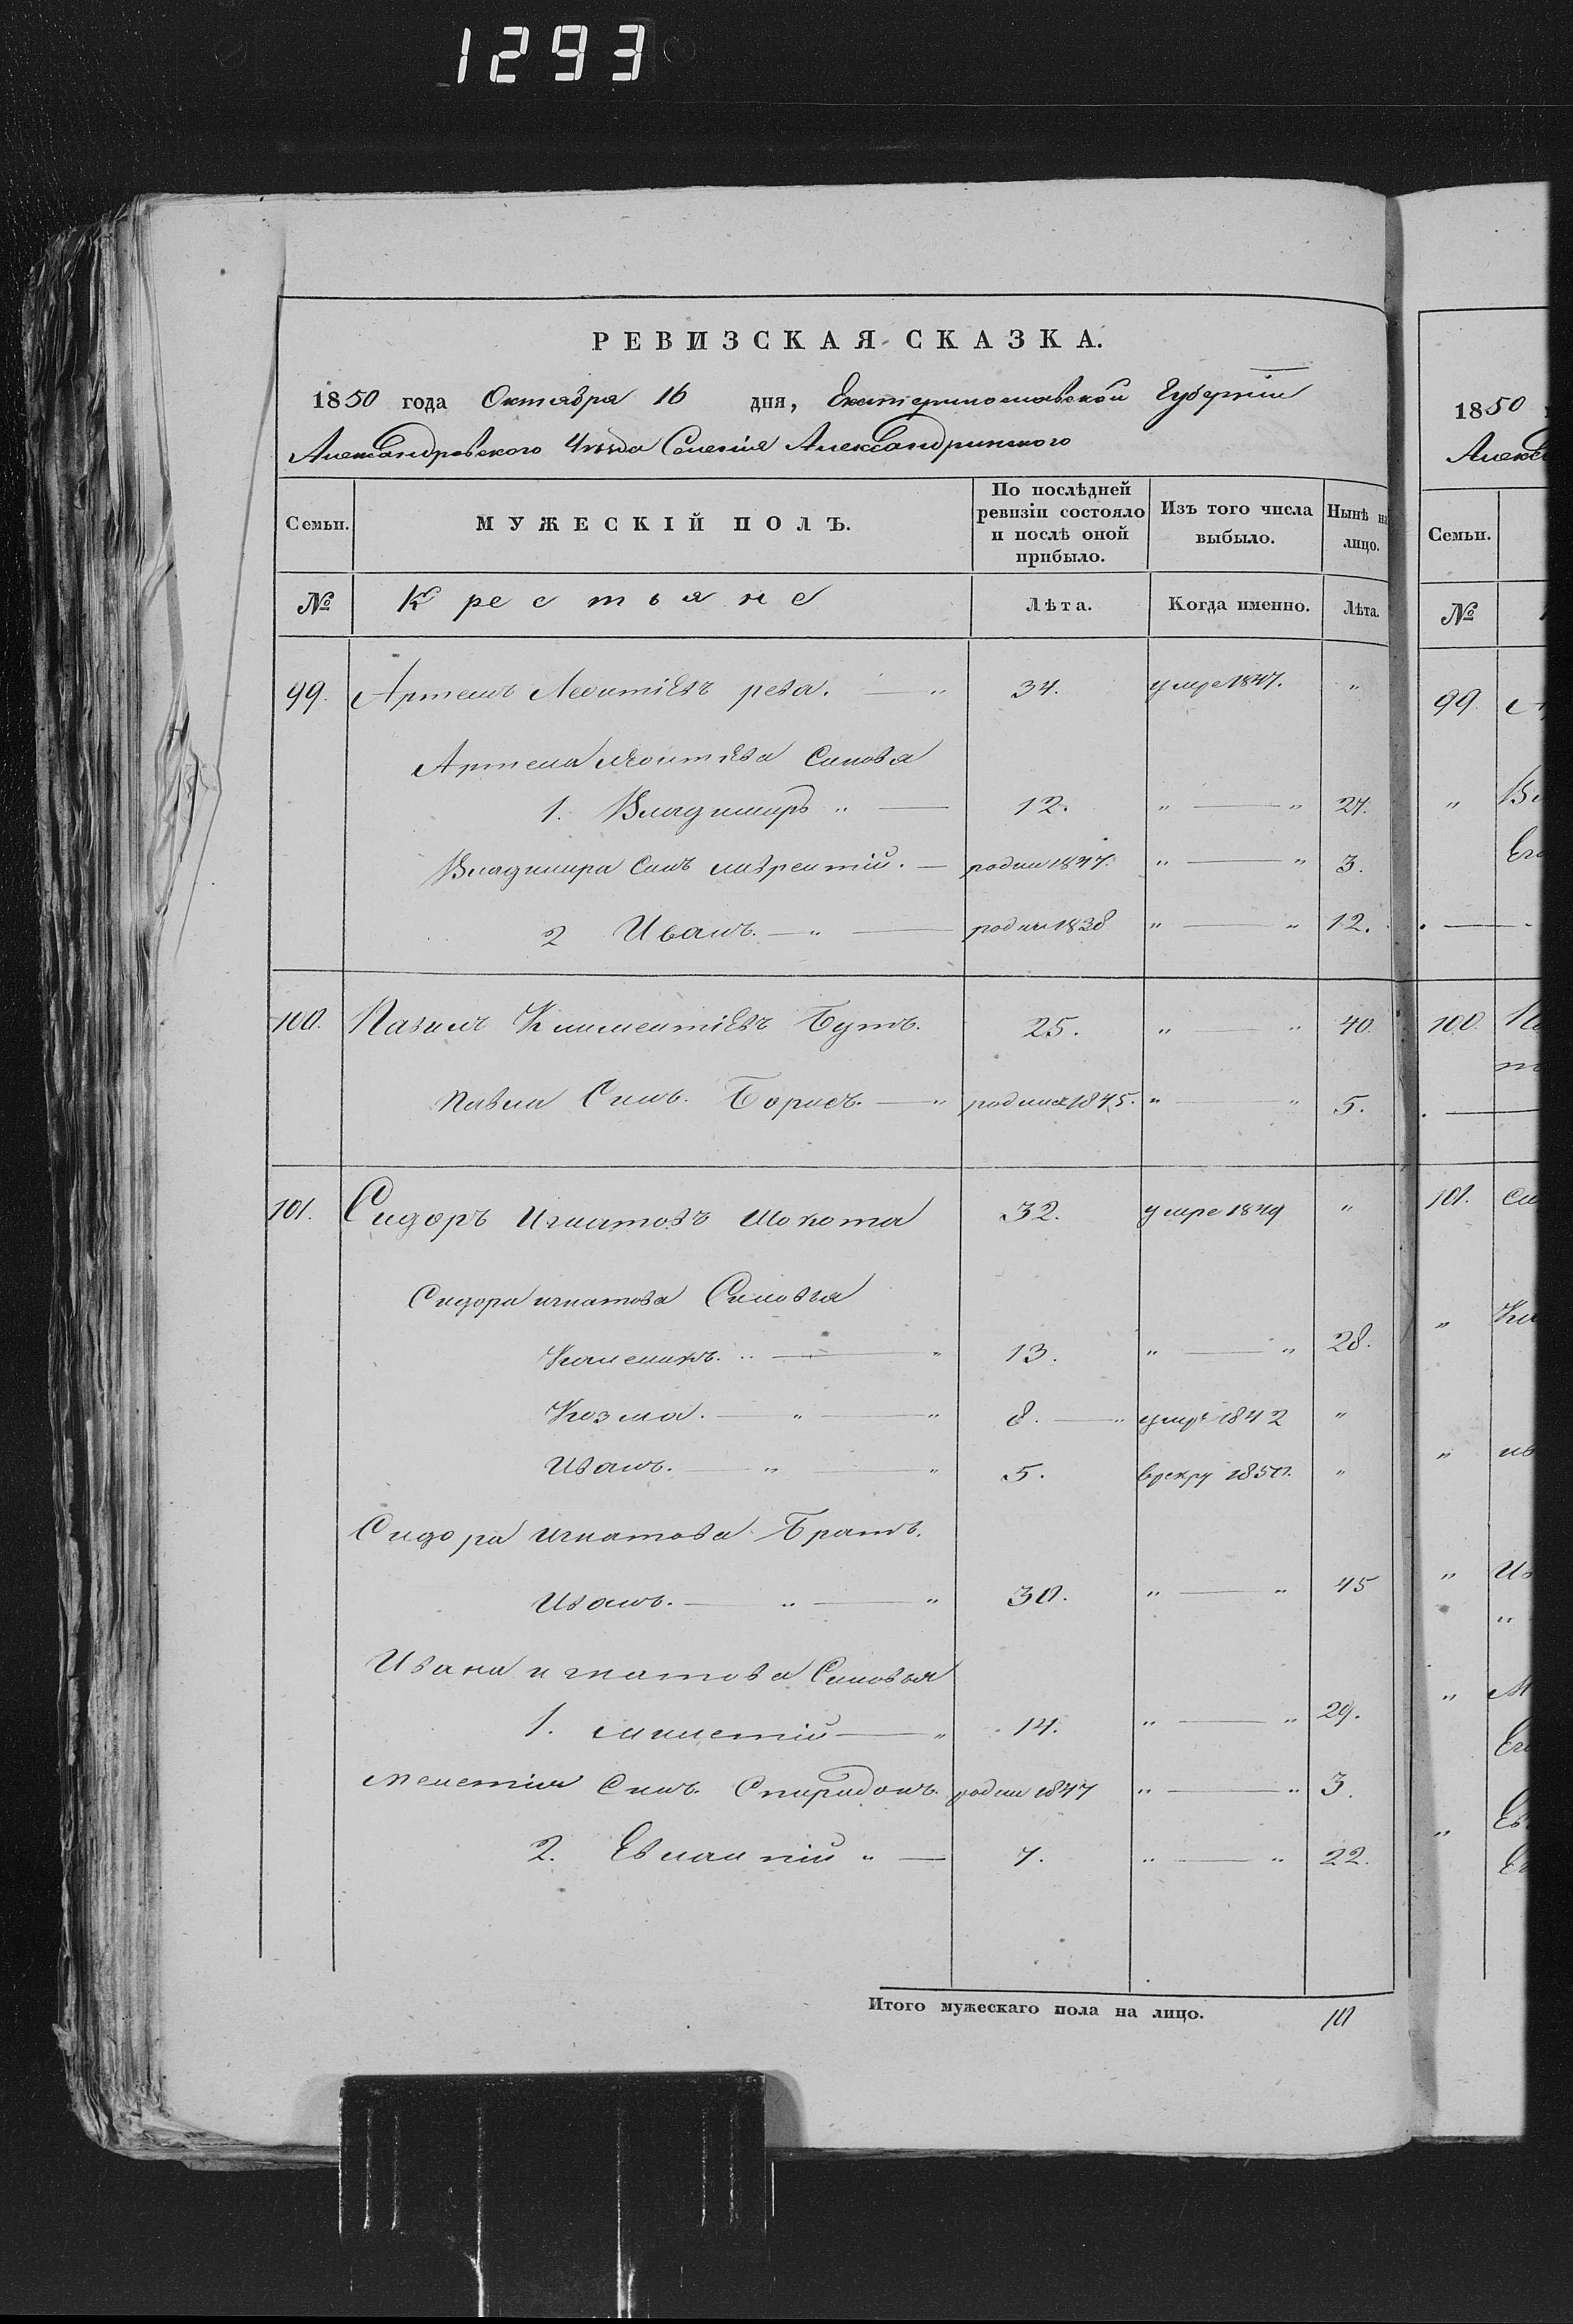 1293
РЕВИЗСКАЯ СКАЗКА.
1850 года Октября 16 дня, Екатеринославской Губерніи
Александровского Уѣзда Селенія Александринского
Семьи. МУЖЕСКІЙ ПОЛЪ. По послѣдней ревизіи состояло и послѣ оной прибыло. Изъ того числа выбыло. Нынѣ на лицо.
№ Крестьяне Лѣта. Когда именно. Лѣта.
99. Артемъ Леонтіевъ рева. — „ 34. умре 1847. „
Артема Леонтіева Синовя
1. Владимиръ „ — 12. „ — „ 27.
Владимира Синъ лаврентій. — родил 1847. „ — „ 3.
2 Иванъ. — „ — родил 1838 „ — „ 12.
100. Павилъ Климентіевъ Бутъ. 25. „ — „ 40.
павла Синъ. Борисъ. — „ родился 1845. „ — „ 5.
101. Сидоръ Игнатовъ Шокота 32. умре 1849 „
Сидора игнатова Синовья
Каленикъ. „ — „ 13. „ — „ 28.
Козма. — „ — „ 8. — „ умре 1842 „
Иванъ. — „ — „ 5. врекру 1850. „
Сидора игнатова Братъ.
Иванъ. — „ — „ 30. „ — „ 45
Ивана игнатова Синовья
1. милетій — „ 14. „ — „ 29.
мелетія Синъ. Спиридонъ. родил 1847 „ — „ 3.
2. Евлампій „ — 7. „ — „ 22.
Итого мужескаго пола на лицо. 10
1850
Алекса
Семьи.
№
99.
„
100.
101.